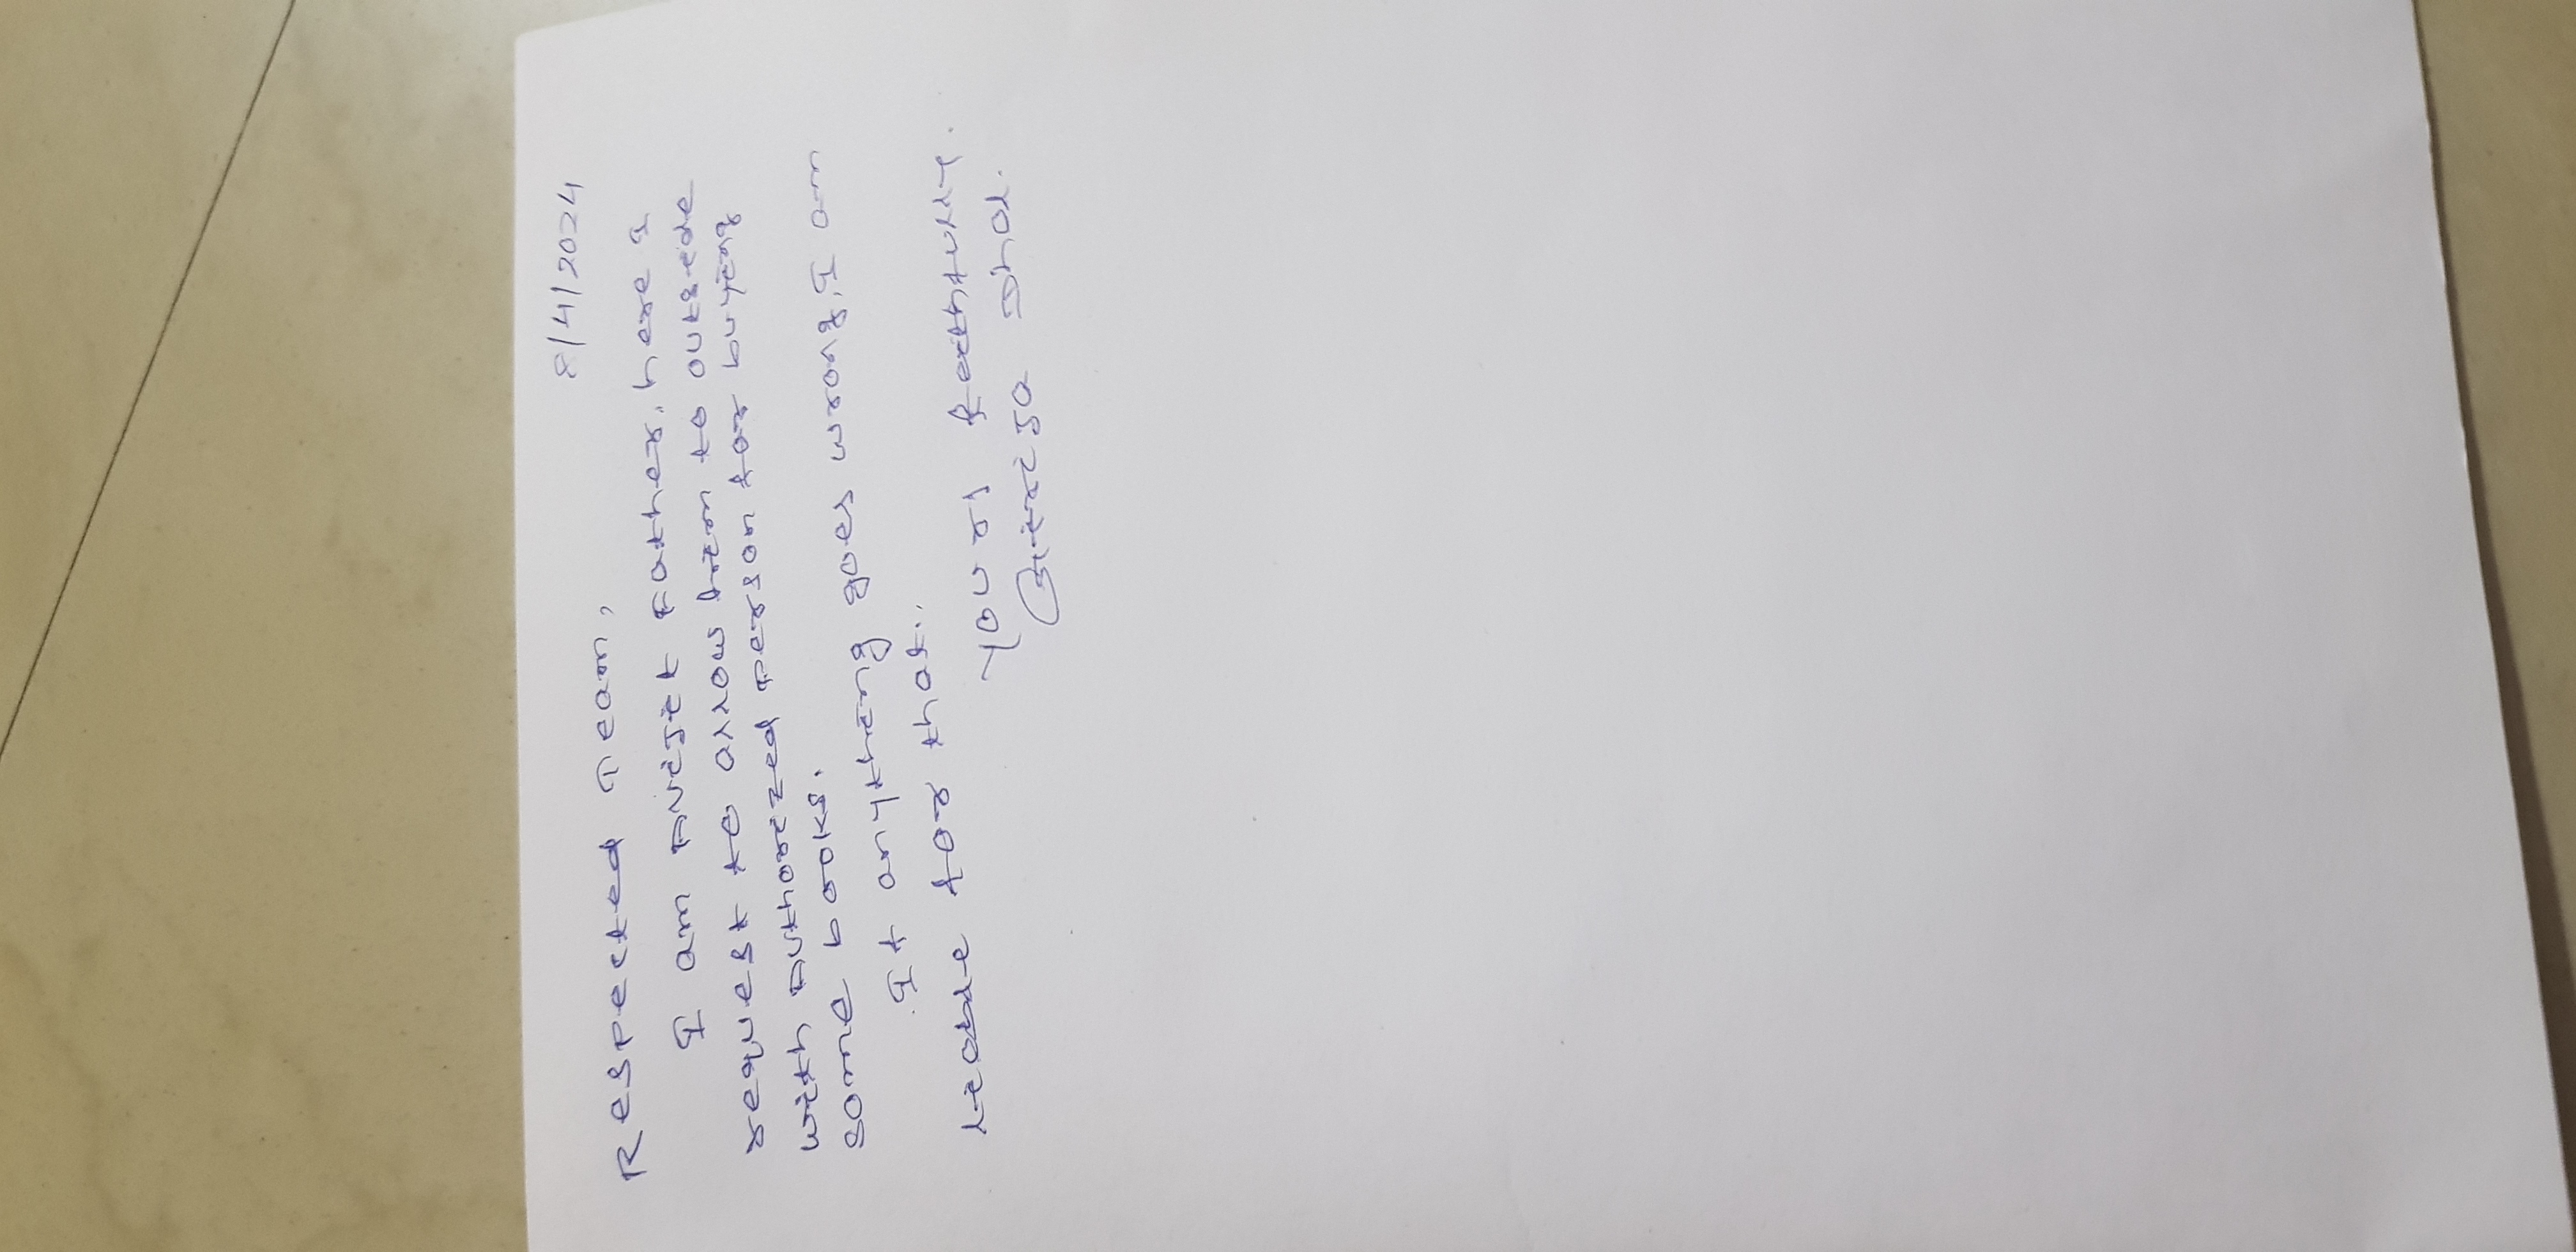 8/4/2024
Respected Team,
I am Avisit Father, here I
request to allow him to outside
with Authorized person for buying
some books.
If anything goes wrong, I am
liable for that.
Your's faithfully.
Shah.